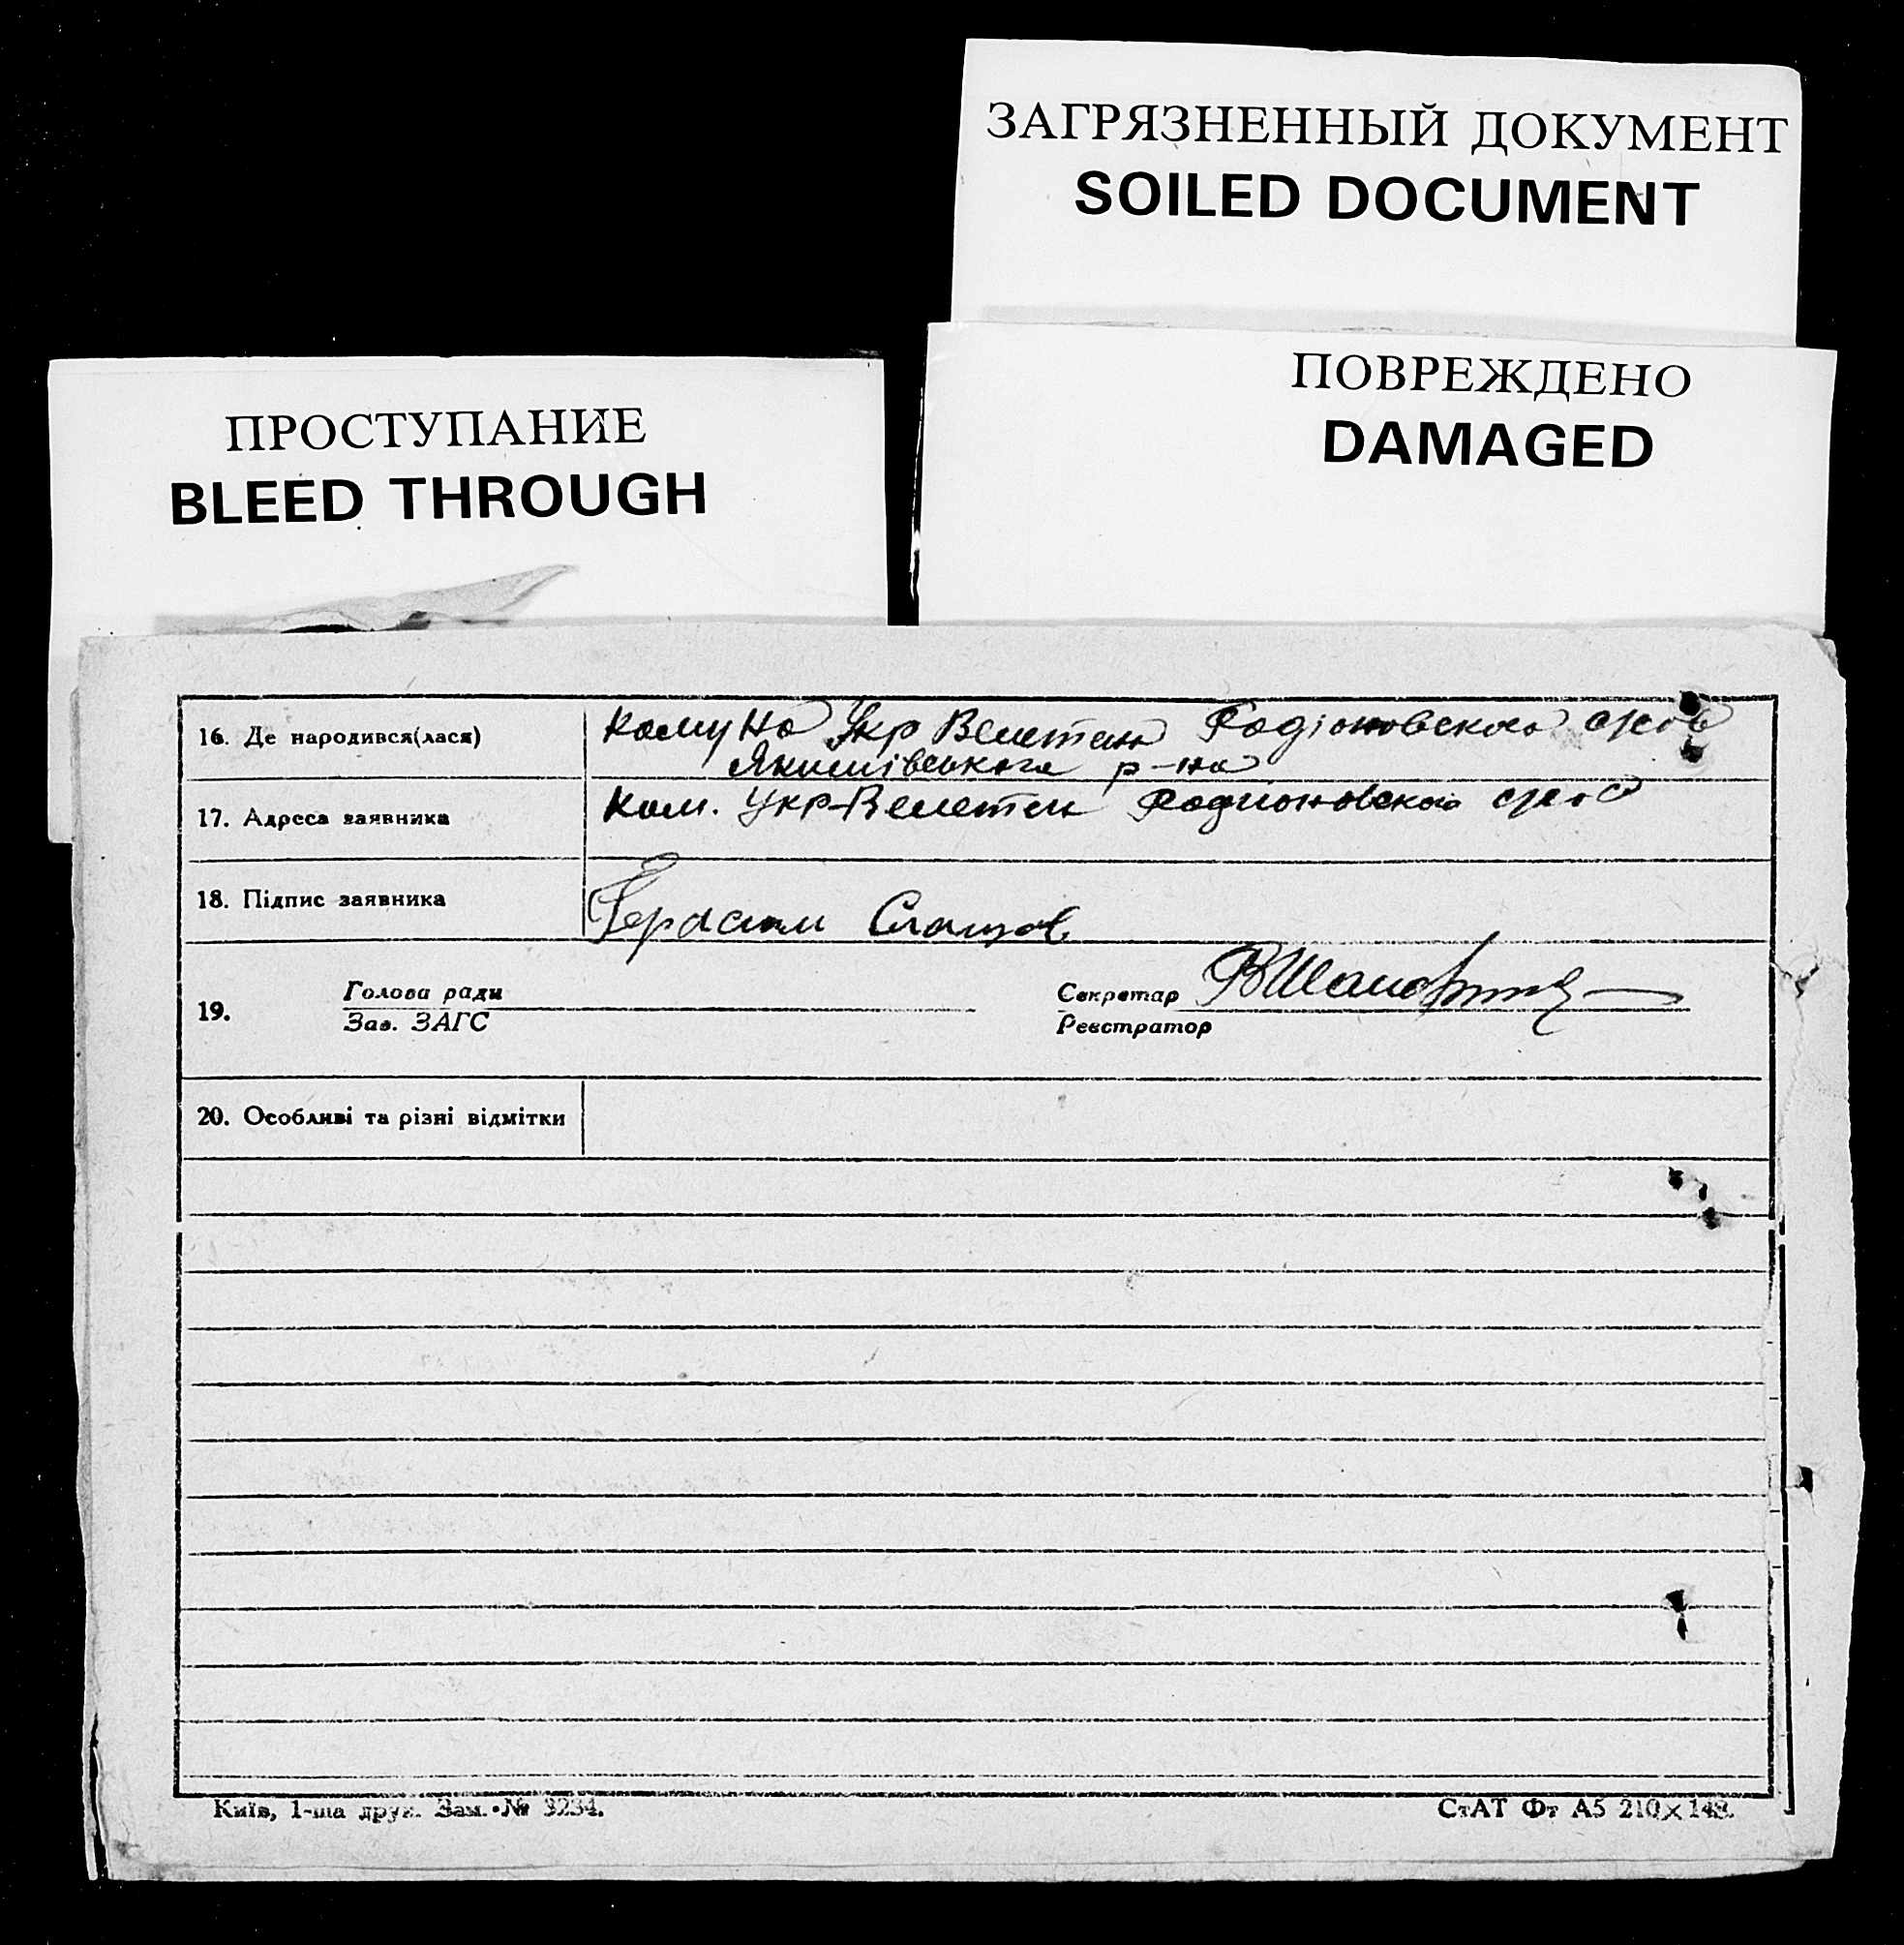 ЗАГРЯЗНЕННЫЙ ДОКУМЕНТ
SOILED DOCUMENT
ПОВРЕЖДЕНО
DAMAGED
ПРОСТУПАНИЕ
BLEED THROUGH
16. Де народився(лася)
Комуна Укр Велетень Родіоновского
Якимівського р-на
17. Адреса заявника
Ком. Укр-Велетень Родионовского
18. Підпис заявника
Герасим
19.
Голова ради
Зав. ЗАГС
Секретар
Реєстратор
20. Особливі та різні відмітки
Київ, 1-ша друк. Зам. № 3234.
СтАТ Фт А5 210×148.